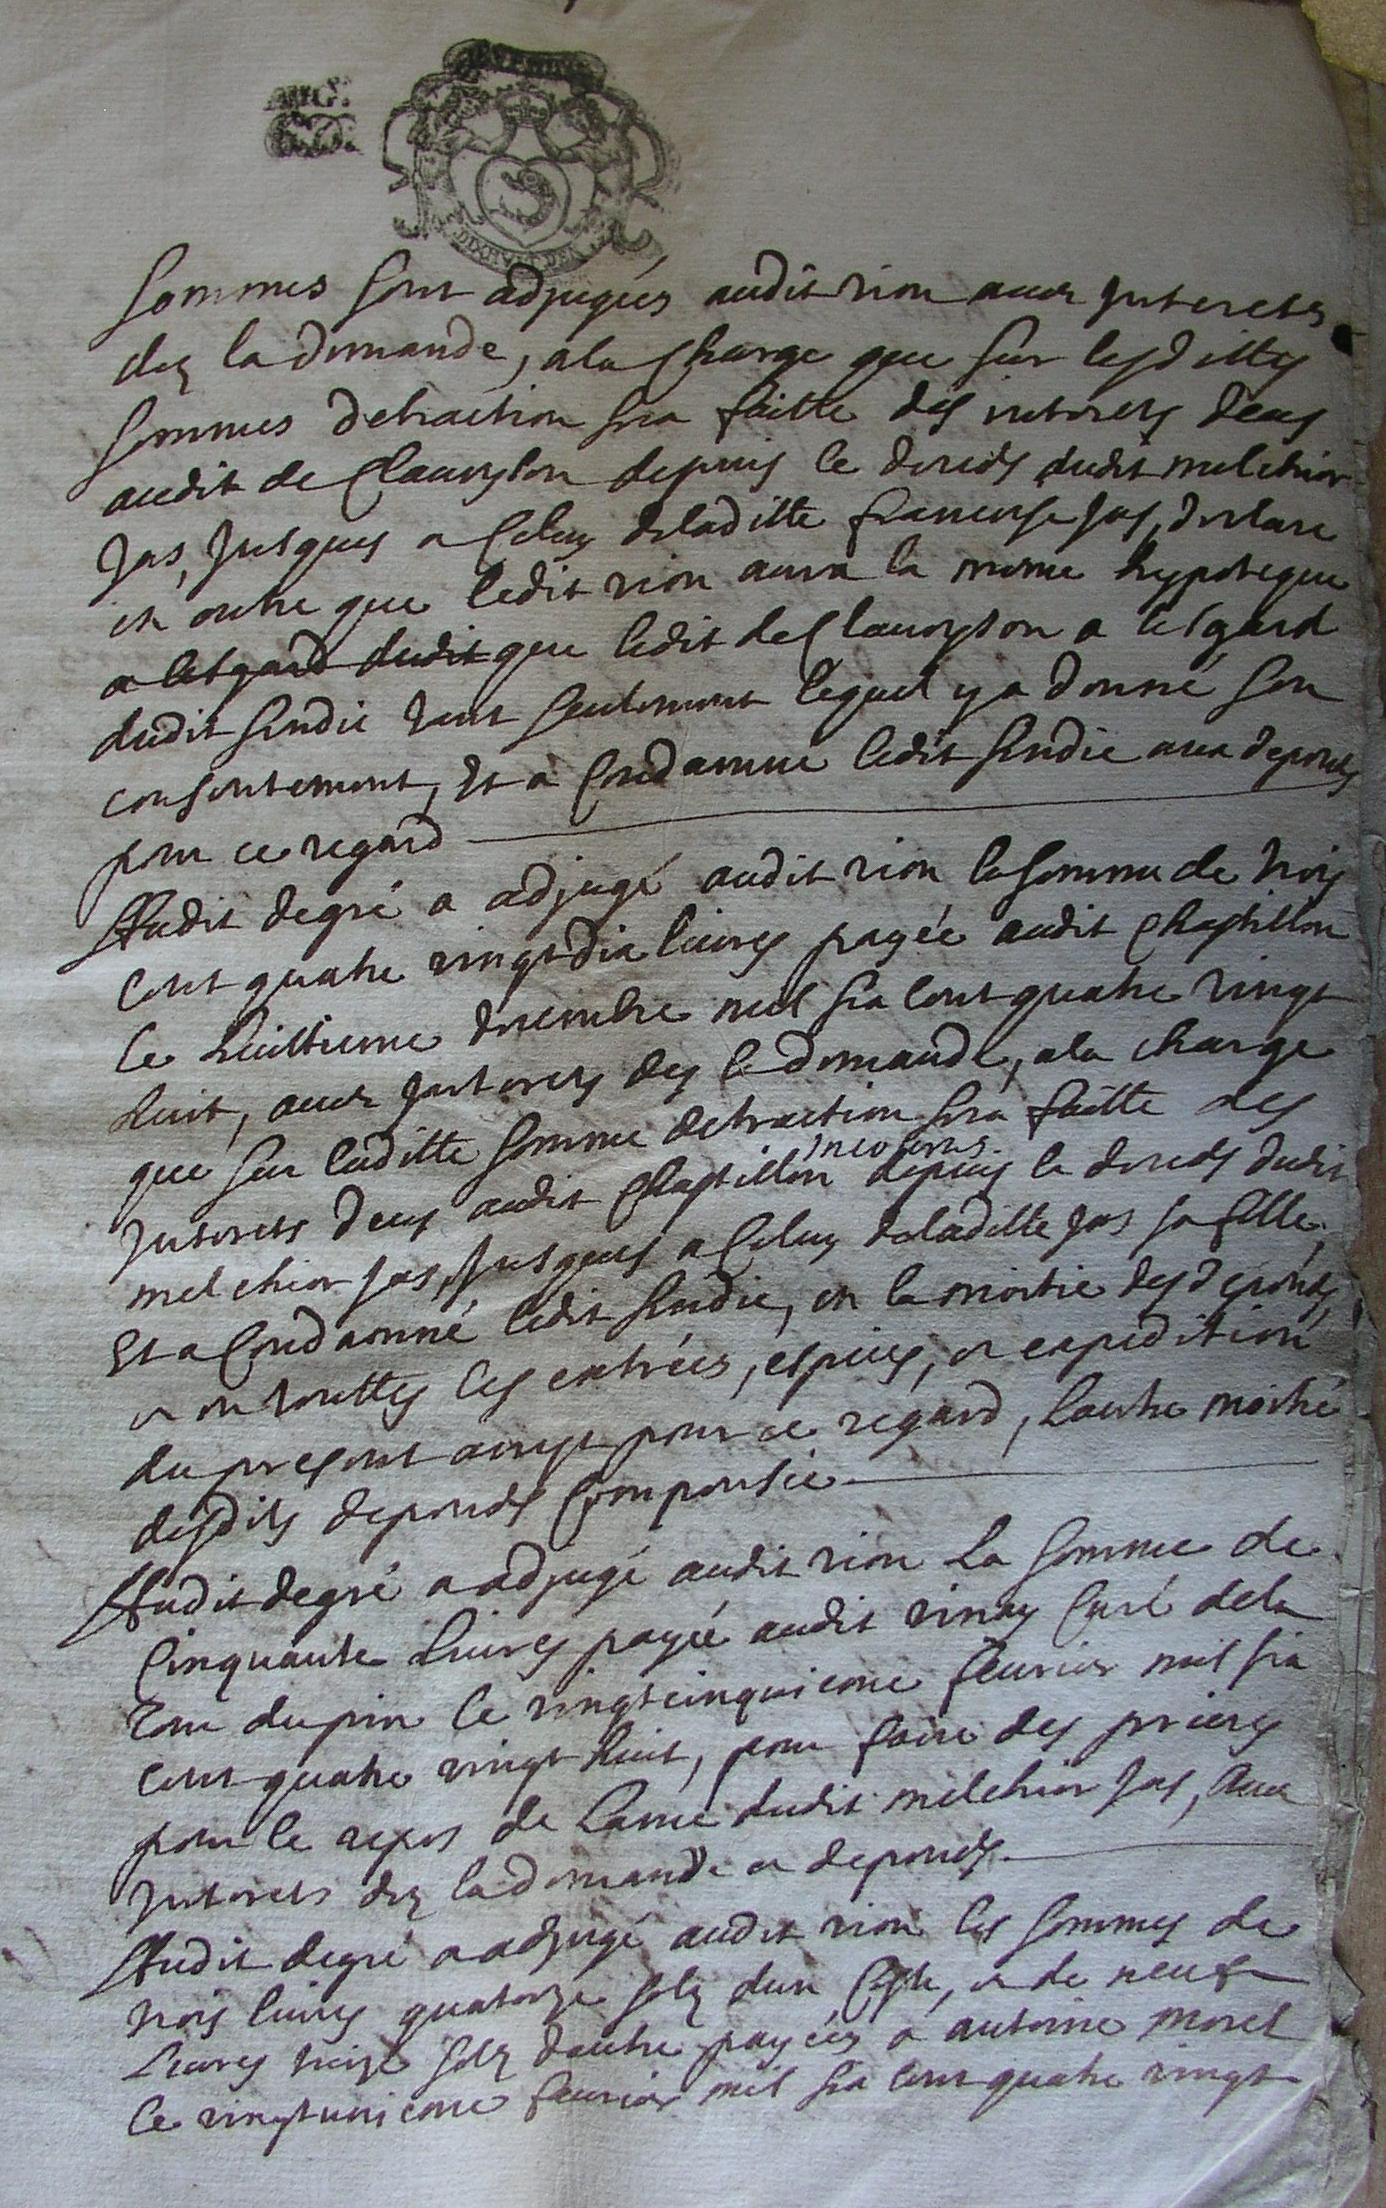 DIXHUIT DEN
sommes sont adjugées audit rion auec Jnterets
dez la demande, a la Charge que sur lesdittes
sommes detraction sera faitte des interets deus
audit de Claueyson depuis le deceds dudit melchior
Jas, Jusques a Celuy deladitte francoise Jas, declare
en outre que ledit rion aura la meme hypoteque
a lesgard dudit que ledit de Claueyson a lesgard
dudit sindic tant seulement lequel y a donné son
consentement, Et a Condamné ledit sindic aux depends
pour ce regard
Audit degré a adjugé audit rion la somme de trois
Cent quatre vingt dix liures payée audit Chastillon
le huittieme decembre mil six Cent quatre vingt
huit, auec Jnterets dez la demande, a la charge
que sur laditte somme detraction sera faitte des
Jnterets deus audit Chastillon Jncourus depuis le deceds dudit
melchior Jas, Jusques a Celuy deladitte Jas sa fille,
Et a Condamné ledit sindic, en la moitie des depends,
et en touttes les entrées, espices, et expedition
du present arrest pour ce regard, Lautre moitié
desdits depends Compensée
Audit degré a adjugé audit rion La somme de
Cinquante Liures payée audit vinay Curé dela
Tour du pin le vingtcinquieme feurier mil six
Cent quatre vingt huit, pour faire des prieres
pour le repos de Lame dudit melchior Jas, auec
Jnterets dez la demande et depends.
Audit degré a adjugé audit rion les sommes de
trois liures quatorze solz dun Costé, et de neuf
Liures treize solz dautre payées a antoine morel
le vingtunieme feurier mil six Cent quatre vingt